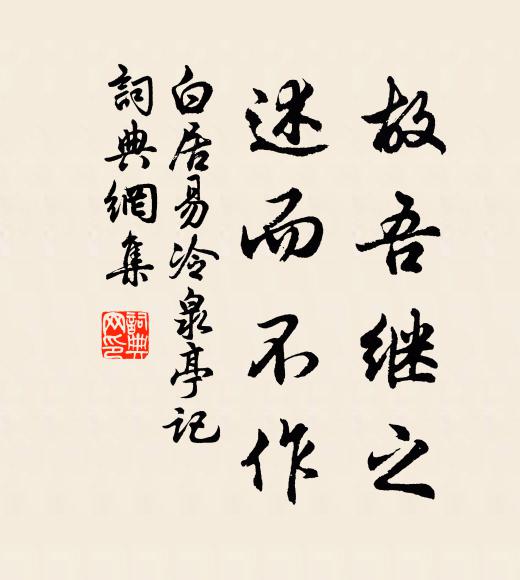 故吾继之
述而不作
白居易冷泉亭记
詞典網集
詞典網印